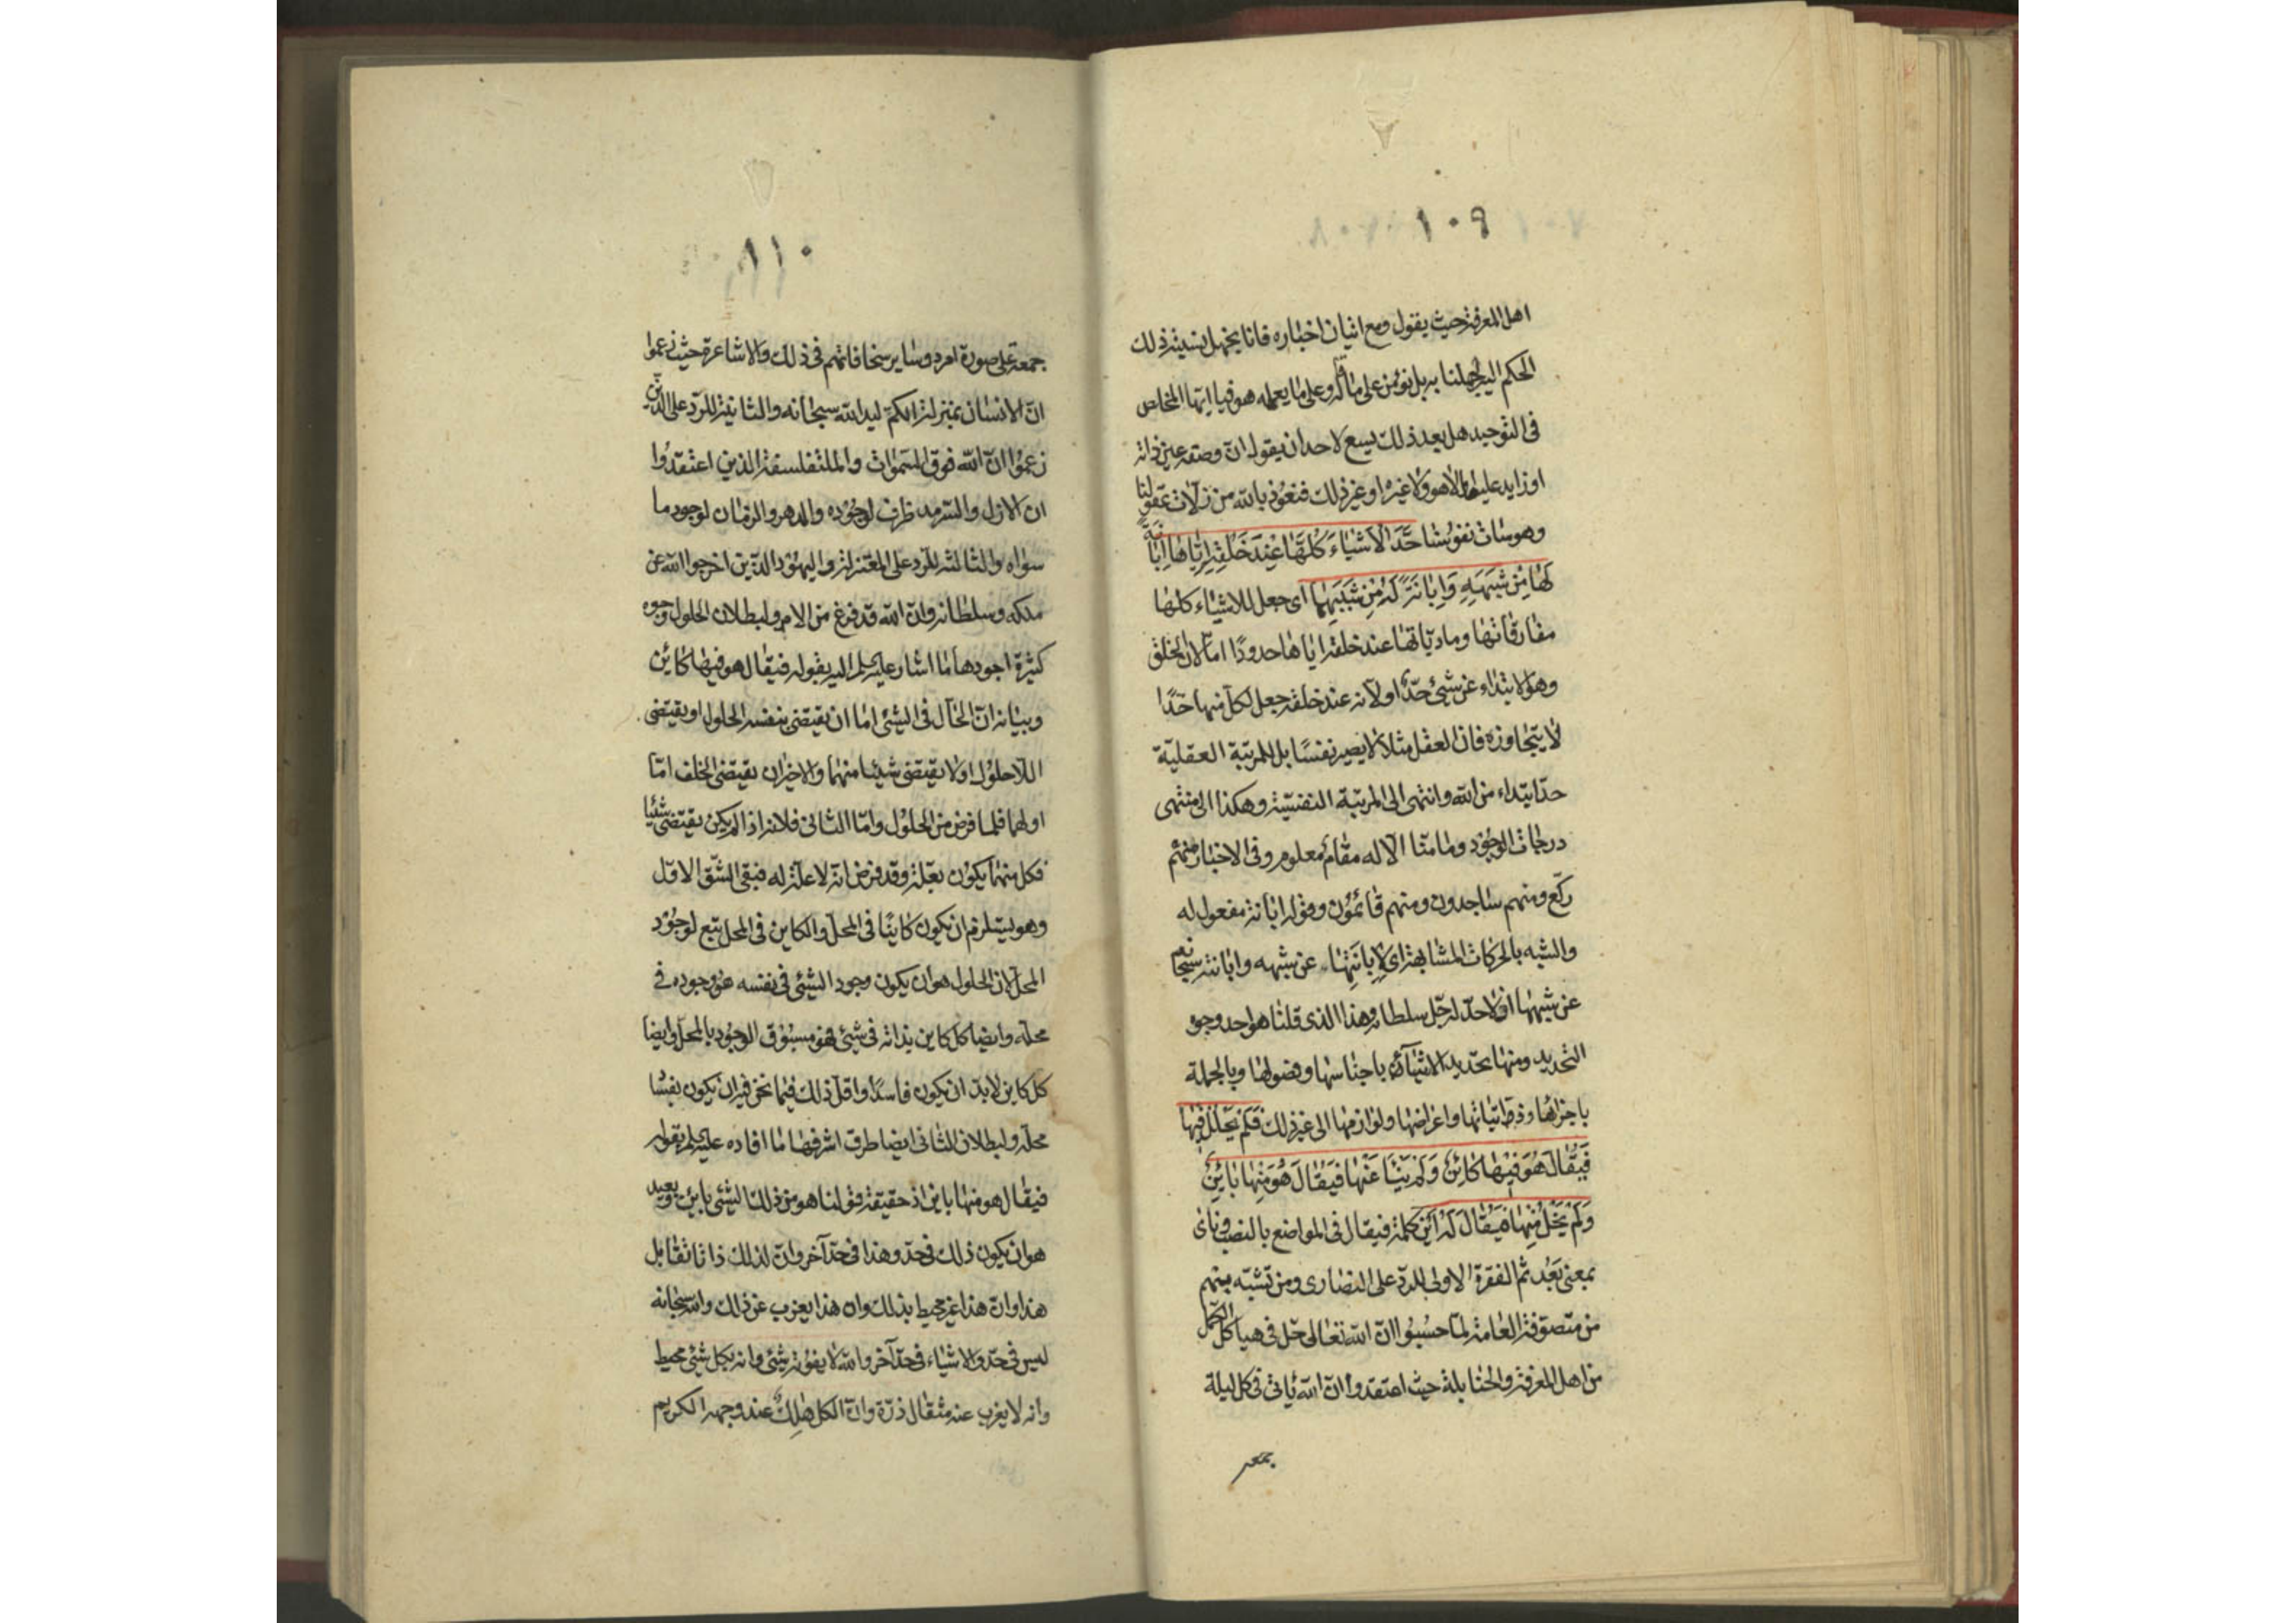 ١٠٩
اهل المعرفة حيث يقول ومع اتيان اخباره فانا نجهل نسبة ذلك
الحكم اليه لجهلنا به بل نؤمن على ما قاله وعلى ما يعلمه هو فيا ايها المخاض
فى التوحيد هل بعد ذلك يسع لاحد ان يقول ان وصفه عين ذاته
او زايد عليها لا هو ولا غيره او غير ذلك فنعوذ بالله من زلات عقولنا
وهوسات نفوسنا حَدَّ الاَشْياءَ كُلَّهَا عِنْدَ خَلْقِهِ اِيّاها اِبانَةً
لَهَا مِنْ شَبَهِهِ وَاِبَانَةً لَهُ مِنْ شَبَهِهَا اى جعل للاشياء كلها
مفارقاتها ومادياتها عند خلقه اياها حدودا اما لان الخلق
وهو لابتداء عن شئ حدّ او لانه عند خلقه جعل لكل منها حدًا
لا يتجاوزه فان العقل مثلا لا يصير نفسًا بل للمرتبة العقلية
حدّ ابتداء من الله وانتهى الى المرتبة النفسية وهكذا الى منتهى
درجات الوجود وما منا الا له مقام معلوم وفى الاخبار منهم
ركع ومنهم ساجدون ومنهم قائمون وقوله ابانة مفعول له
والشبه بالحركات المشابهة اى لاِبانَتِهَا عن شبهه وابانته سبحانه
عن شبهها اذ لا حدّ له جل سلطانه وهذا الذى قلنا هو احد وجوه
التحديد ومنها تحديد الاشياء باجناسها وفصولها وبالجملة
باجزائها وذاتياتها واعراضها ولوازمها الى غير ذلك فَلَمْ يَحْلُلْ فِيهَا
فَيُقَالَ هُوَ فِيهَا كَائِنٌ وَلَمْ يَنْأَ عَنْهَا فَيُقَالَ هُوَ مِنْهَا بَائِنٌ
وَلَمْ يَخْلُ مِنْهَا فَيُقَالَ لَهُ اَيْنَ كلمة فيقال فى المواضع بالنصب وناى
بمعنى بَعُد ثم الفقرة الاولى للرد على النصارى ومن تشبه بهم
من متصوفة العامة لما حسبوا ان الله تعالى حل فى هياكل الكمل
من اهل المعرفة والحنابلة حيث اعتقدوا ان الله ياتى فى كل ليلة
جمعة
١١٠
جمعة على صورة امرد وساير سخافاتهم فى ذلك والاشاعرة حيث زعموا
ان الانسان بمنزلة الكم ليد الله سبحانه والثانية للرد على الذين
زعموا ان الله فوق السموات والمتفلسفة الذين اعتقدوا
ان الازل والسرمد ظرف لوجوده والدهر والزمان لوجود ما
سواه والثالثة للرد على المعتزلة واليهود الذين اخرجوا الله عن
ملكه وسلطانه وان الله قد فرغ من الامر ولبطلان الحلول وجوه
كثيرة اجودها ما اشار عليه السلم اليه بقوله فيقال هو فيها كائن
وبيانه ان الحال فى الشئ اما ان يقتضى بنفسه الحلول او يقتضى
اللاحلول او لا يقتضى شيئا منهما والاخيران يقتضى الخلف اما
اولهما فلما فرض من الحلول واما الثانى فلانه اذا لم يكن يقتضى شيئا
فكل منهما يكون بعلة وقد فرض انه لا علة له فبقى الشق الاول
وهو يستلزم ان يكون كاينًا فى المحل والكاين فى المحل يتبع لوجود
المحل لان الحلول هو ان يكون وجود الشئ فى نفسه هو وجوده فى
محله وايضا كل كاين بذاته فى شئ فهو مسبوق الوجود بالمحل وايضا
كل كاين لابد ان يكون فاسدًا واقل ذلك فيما نحن فيه ان يكون بفساد
محله ولبطلان الثانى ايضا طرق اشرفها ما افاده عليه السلم بقوله
فيقال هو منها باين اذ حقيقة قولنا هو من ذلك الشئ باين وبعيد
هو ان يكون ذلك فى حد وهذا فى حد آخر وان لذلك ذاتا تقابل
هذا وان هذا غير محيط بذلك وان هذا يعزب عن ذلك والله سبحانه
ليس فى حد والاشياء فى حد آخر والله لا يفوته شئ وانه بكل شئ محيط
وانه لا يعزب عنه مثقال ذرة وان الكل هالك عند وجهه الكريم